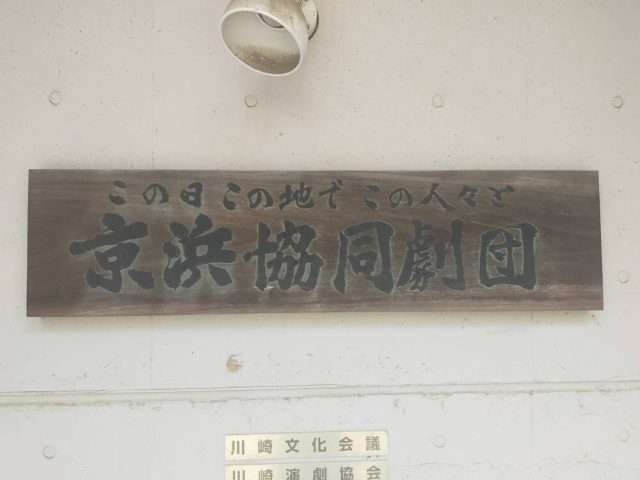 この日この地で この人々と
京浜協同劇団
川崎文化会議
川崎演劇協会